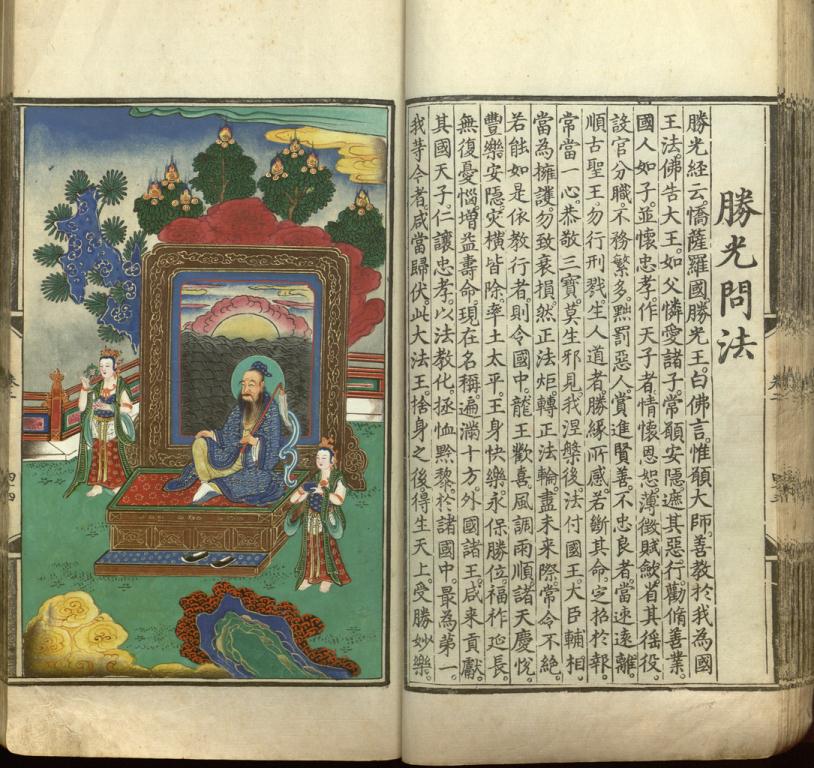 勝光問法
勝光經云。憍薩羅國勝光王。白佛言。惟願大師。善教於我為國
王法。佛告大王。如父憐愛諸子。常願安隱。遮其惡行。勸脩善業。
國人如子。並懷忠孝。作天子者。情懷恩恕。薄徵賦斂。省其徭役。
設官分職。不務繁多。黜罰惡人。賞進賢善。不忠良者。當速遠離。
順古聖王。勿行刑戮。生人道者。勝緣所感。若斷其命。定招於報。
常當一心。恭敬三寶。莫生邪見。我涅槃後。法付國王。大臣輔相。
當為擁護。勿致衰損。然正法炬。轉正法輪。盡未來際。常令不絕。
若能如是依教行者。則令國中。龍王歡喜。風調雨順。諸天慶悅。
豐樂安隱。災橫皆除。率土太平。王身快樂。永保勝位。福祚延長。
無復憂惱。增益壽命。現在名稱。遍滿十方。外國諸王。咸來貢獻。
其國天子。仁讓忠孝。以法教化。拯恤黔黎。於諸國中。最為第一。
我等今者。咸當歸伏。此大法王。捨身之後。得生天上。受勝妙樂。